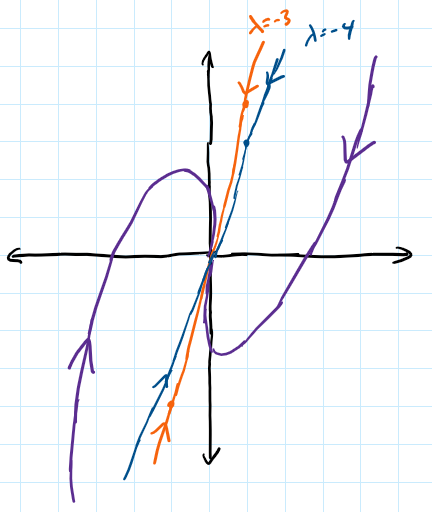 λ=-3
λ=-4